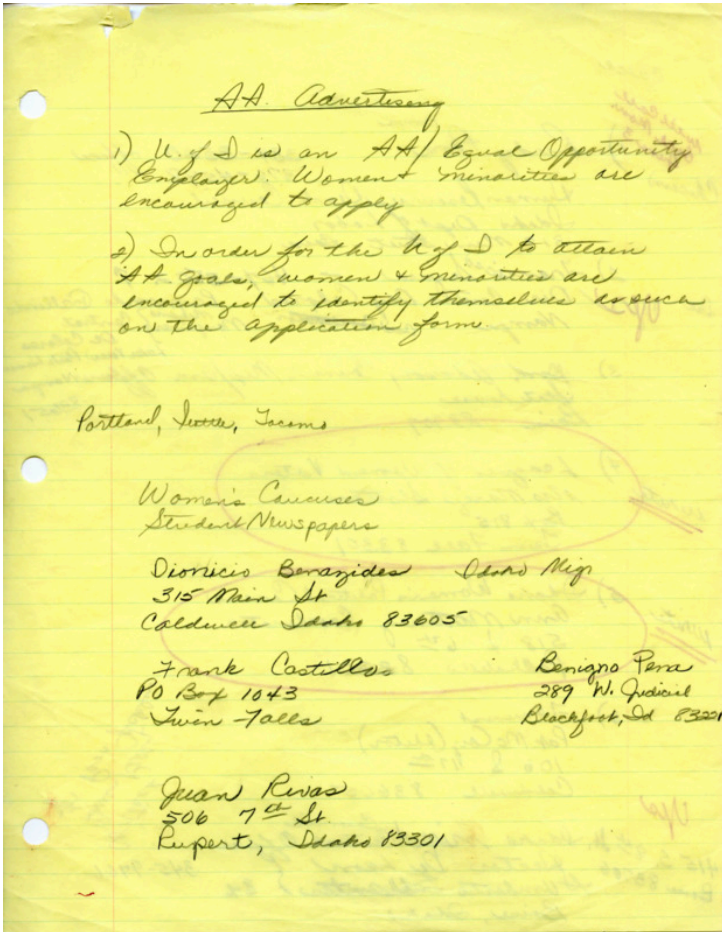 AA. Advertising
1) U. of I is an AA/Equal Opportunity
Employer. Women & minorities are
encouraged to apply
2) In order for the U of I to attain
AA goals, women & minorities are
encouraged to identify themselves as such
on the application form.
Portland, Seattle, Tacoma
Women's Caucuses
Student Newspapers
Dionicio Benavides Idaho Migr
315 Main St
Caldwell Idaho 83605
Frank Castillo
PO Box 1043
Twin Falls
Benigno Pena
289 W. Judicial
Blackfoot, Id 83221
Juan Rivas
506 7th St.
Rupert, Idaho 83301